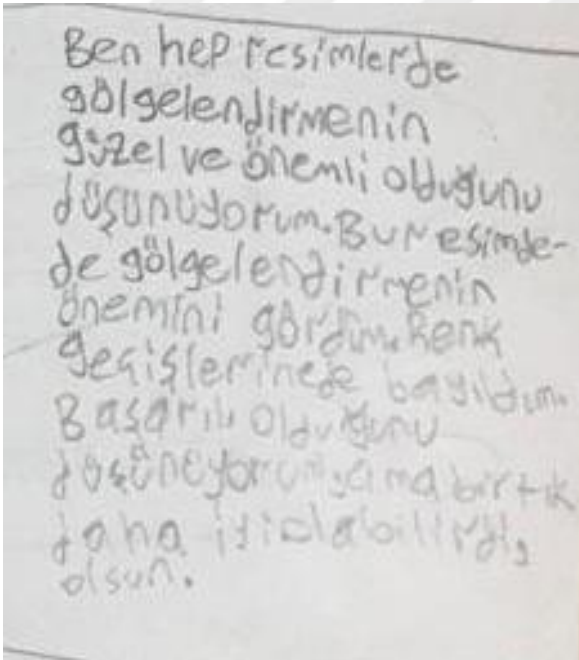 Ben hep resimlerde
gölgelendirmenin
güzel ve önemli olduğunu
düşünüyorum. Bu resimde-
de gölgelendirmenin
önemini gördüm. Renk
geçişlerinede bayıldım.
Başarılı olduğunu
düşüneyorum, ama bir tık
daha iyi olabilirdi,
olsun.